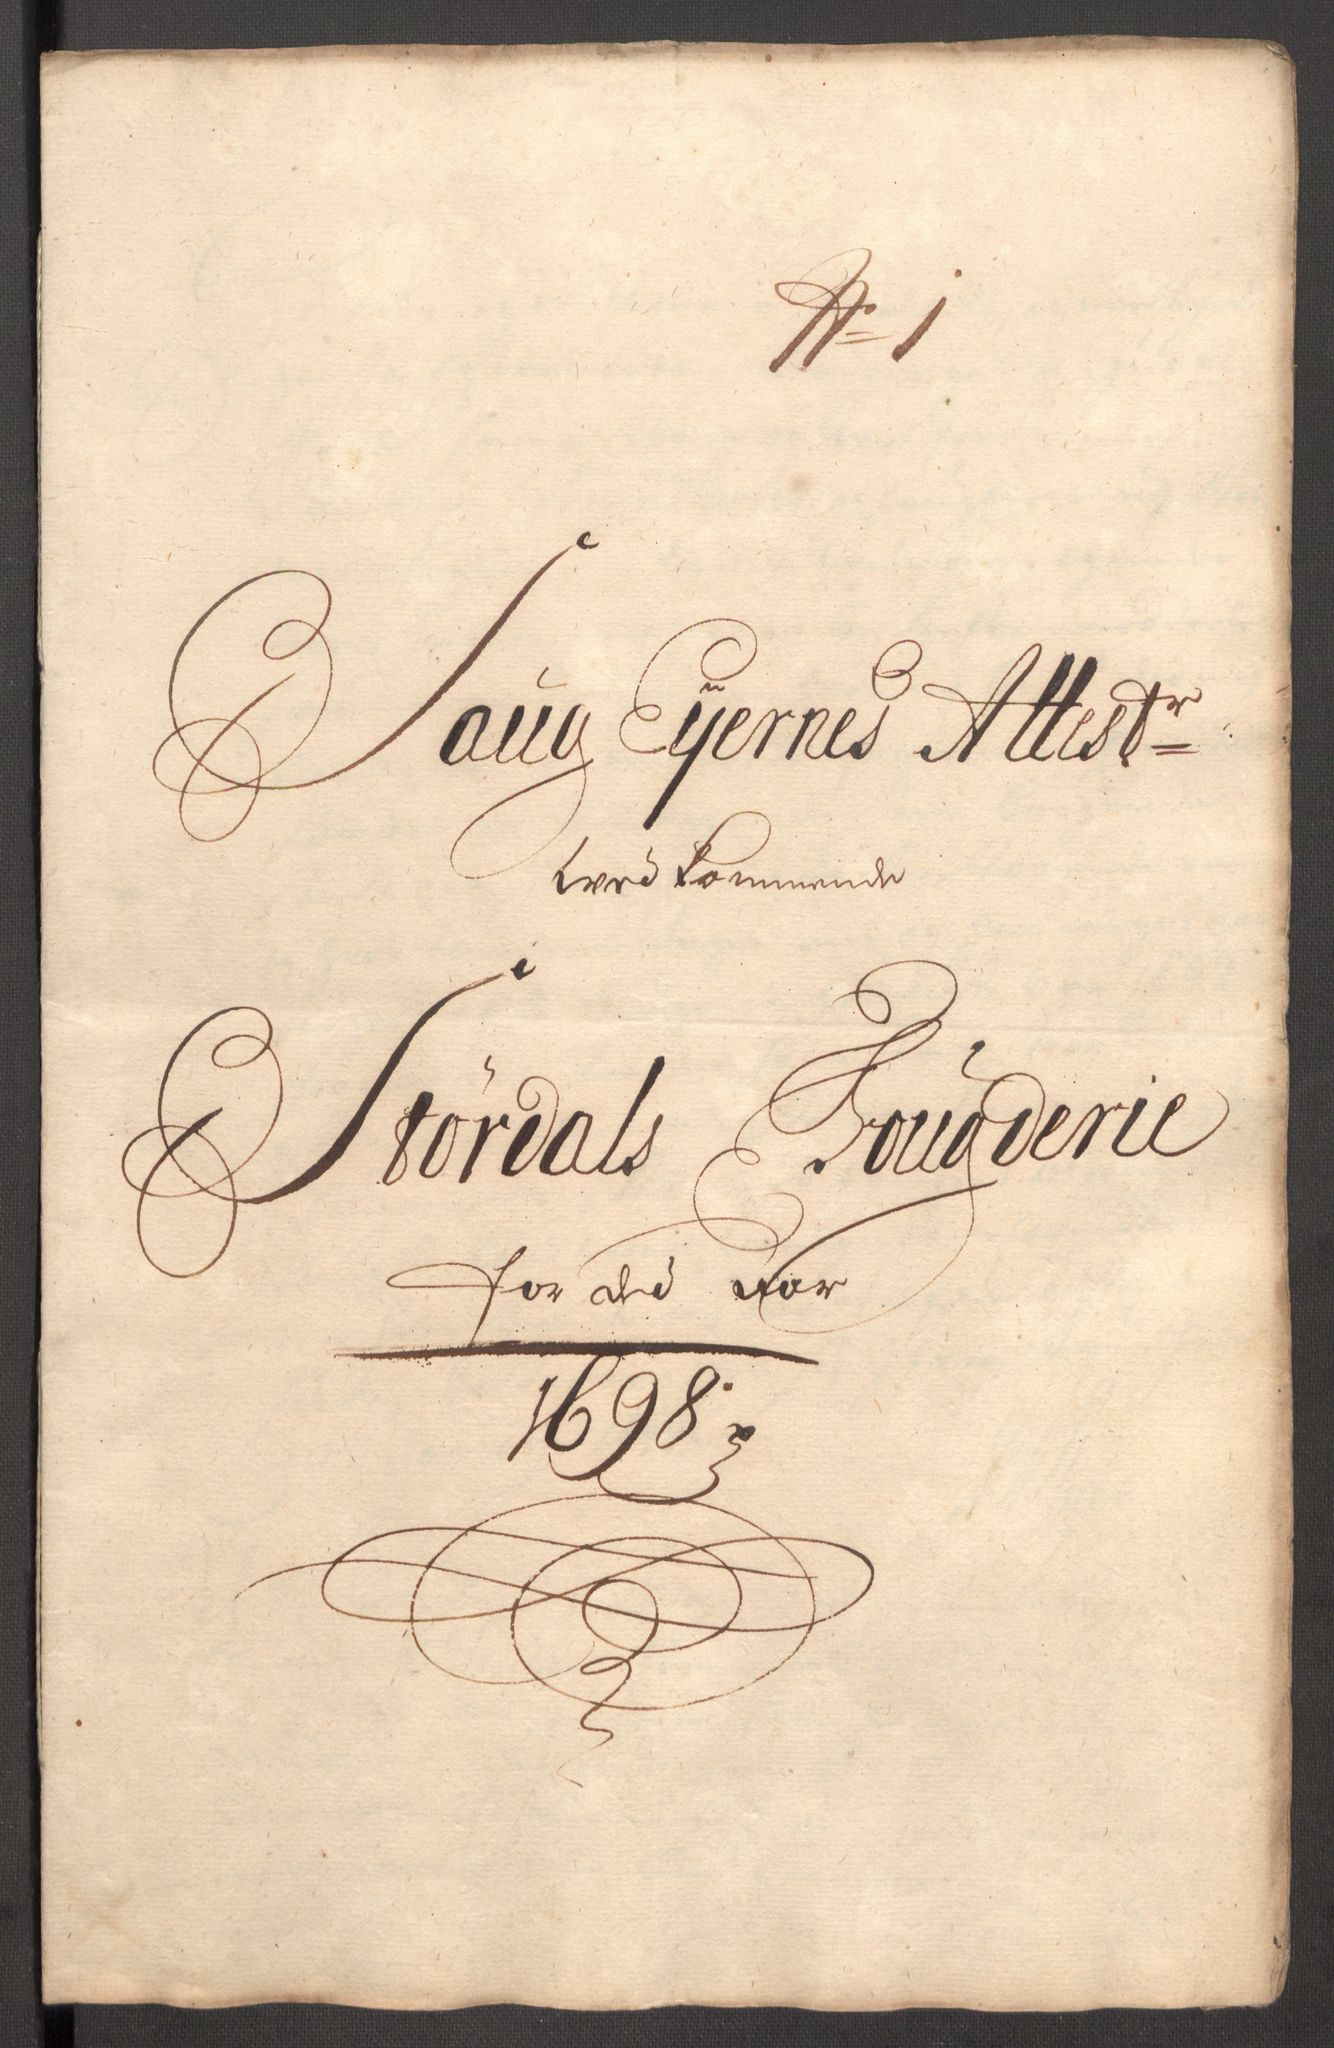 No 1
Saug Eyernes Attestr
wed kommende
Stördals Fougderie
for ded Aar
1698